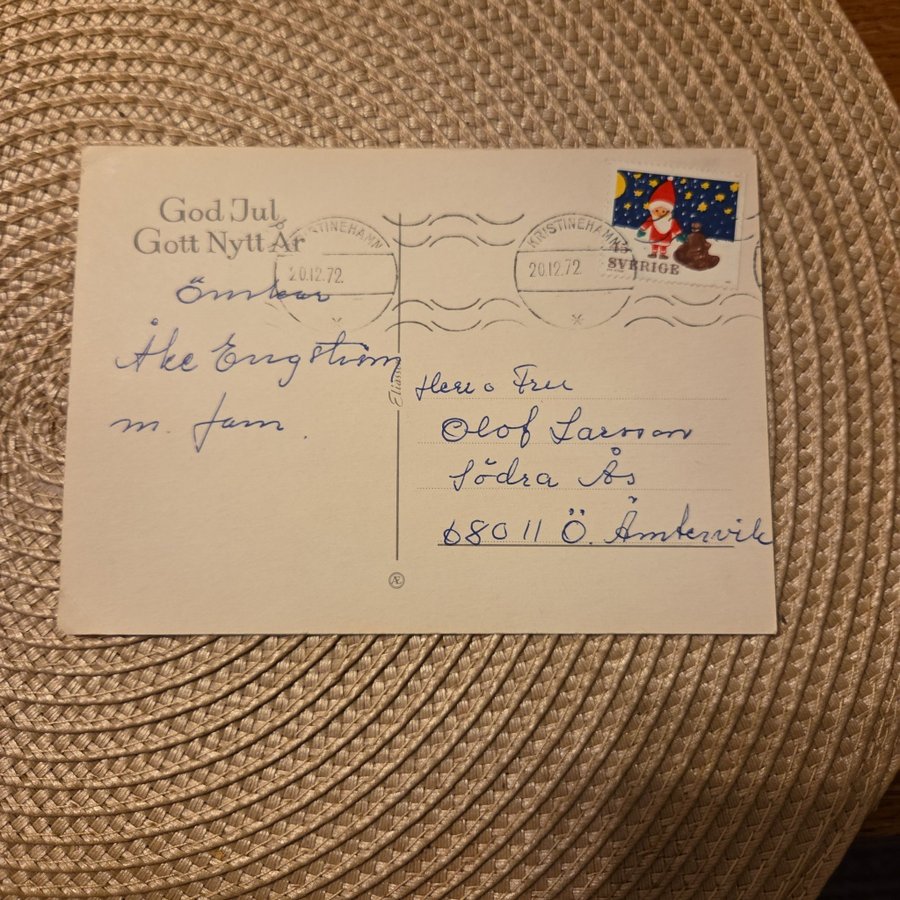 God Jul
Gott Nytt År
önskar
Åke Engström
m. fam.
KRISTINEHAMN
20.12.72
KRISTINEHAMN
20.12.72
45
SVERIGE
Herr o Fru
Olof Larsson
Södra Ås
68011 Ö. Ämtervik
Æ